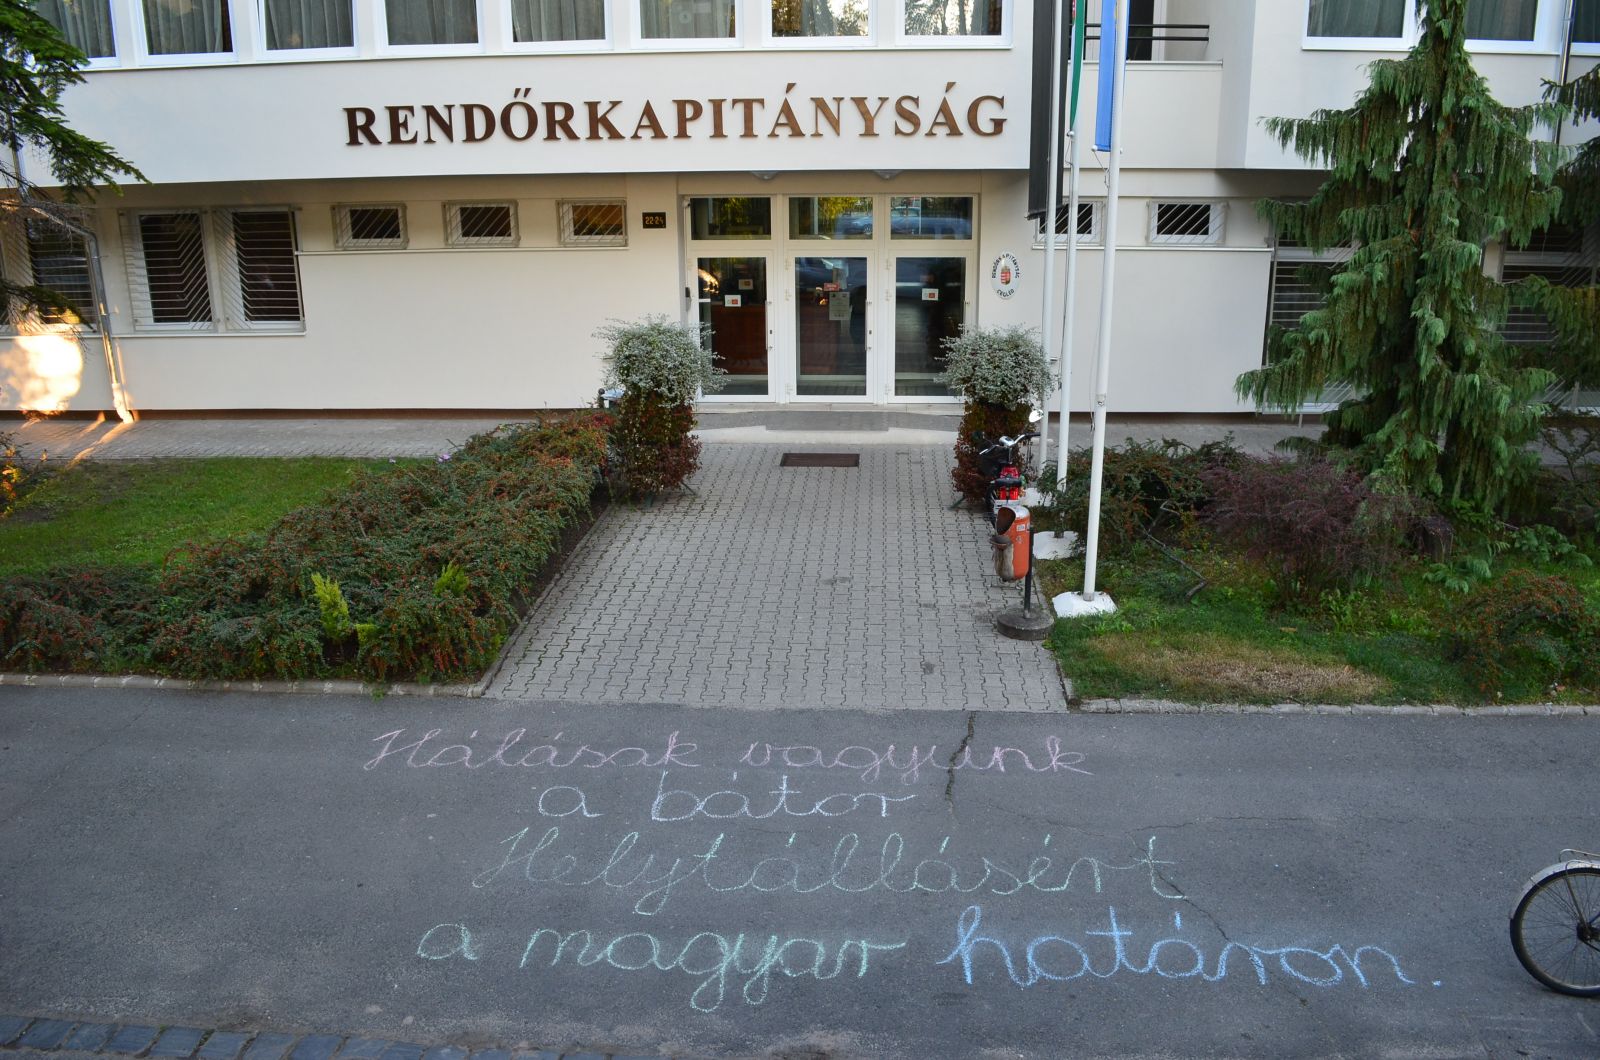 RENDŐRKAPITÁNYSÁG
22-24
RENDŐRKAPITÁNYSÁG
CEGLÉD
Hálásak vagyunk
a bátor
Helytállásért
a magyar határon.